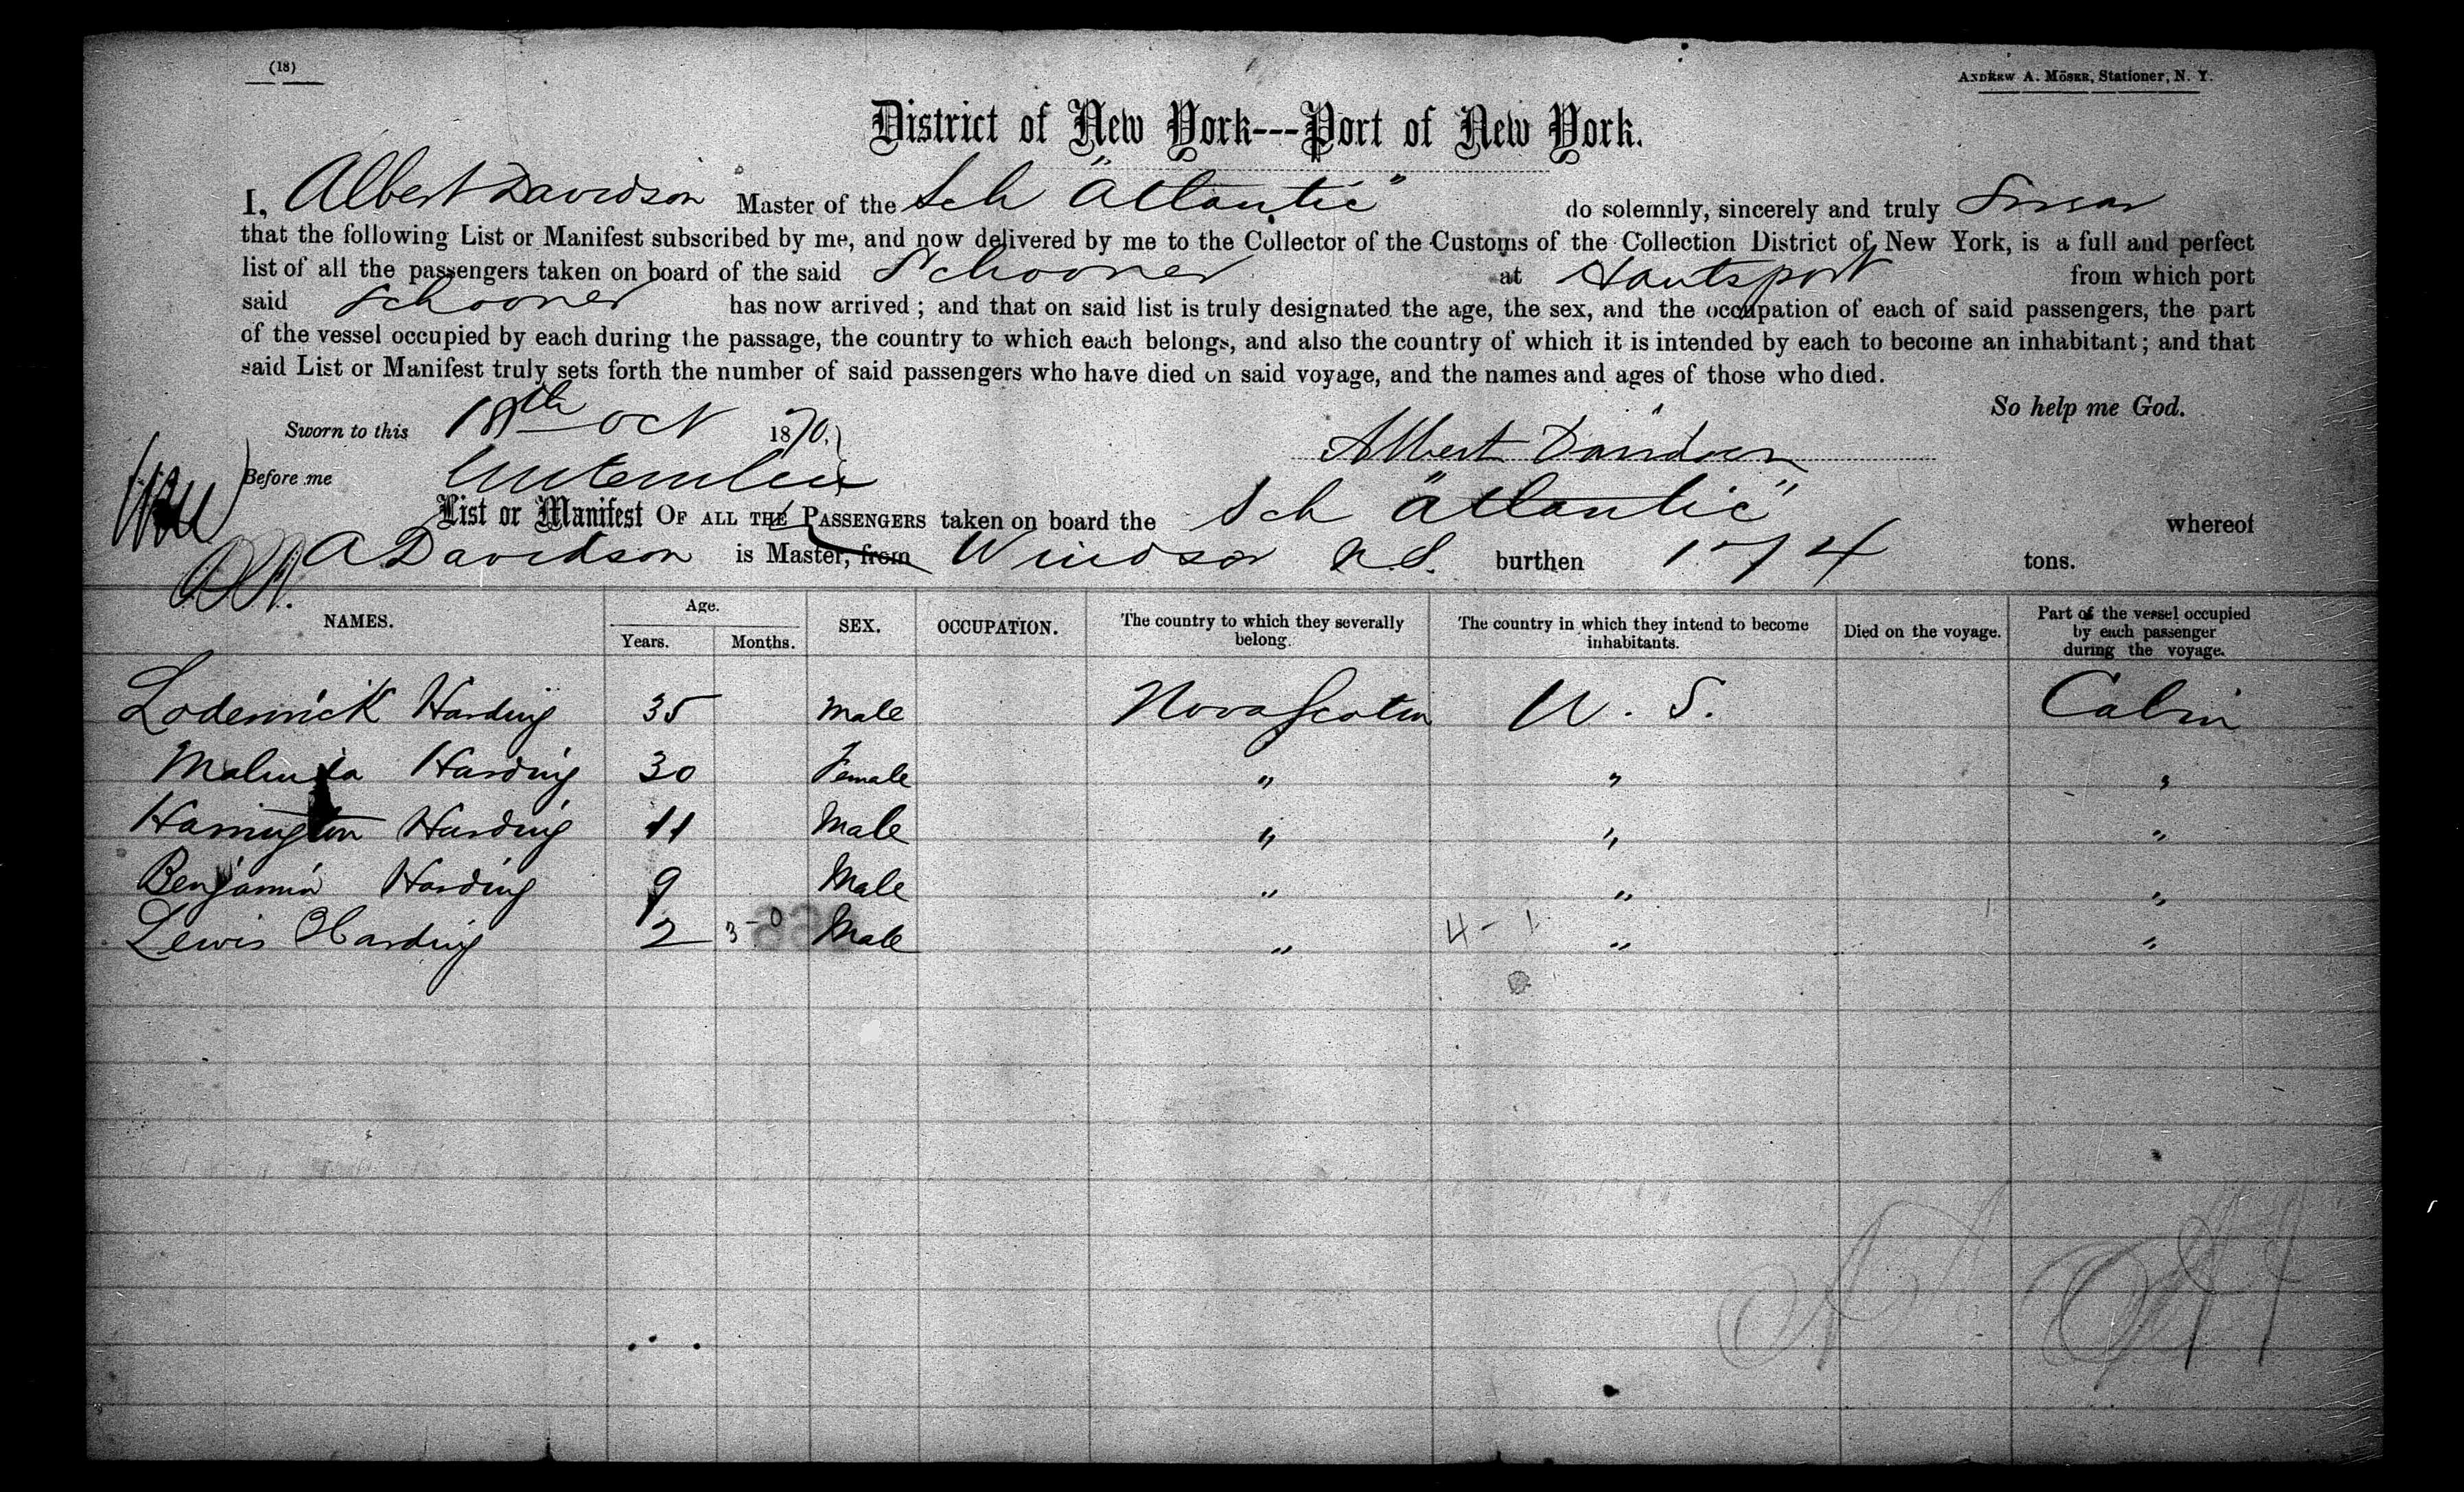 (18)
ANDREW A. MÖSER, Stationer, N. Y.
District of New York---Port of New York.
I, Albert Davidson Master of the Sch "Atlantic" do solemnly, sincerely and truly Swear
that the following List or Manifest subscribed by me, and now delivered by me to the Collector of the Customs of the Collection District of New York, is a full and perfect
list of all the passengers taken on board of the said Schooner at Hantsport from which port
said Schooner has now arrived; and that on said list is truly designated the age, the sex, and the occupation of each of said passengers, the part
of the vessel occupied by each during the passage, the country to which each belongs, and also the country of which it is intended by each to become an inhabitant; and that
said List or Manifest truly sets forth the number of said passengers who have died on said voyage, and the names and ages of those who died.
So help me God.
Sworn to this 18th Oct 1870.
Albert Davidson
Before me
List or Manifest OF ALL THE PASSENGERS taken on board the Sch "Atlantic" whereof
A Davidson is Master, from Windsor N.S. burthen 174 tons.
NAMES. Age. Years. Months. SEX. OCCUPATION. The country to which they severally belong. The country in which they intend to become inhabitants. Died on the voyage. Part of the vessel occupied by each passenger during the voyage.
Loderrick Harding 35 Male Nova Scotia U. S. Cabin
Malinda Harding 30 Female " " "
Harrington Harding 11 Male " " "
Benjamin Harding 9 Male " " "
Lewis Harding 2 3-0 Male " 4-1 " "